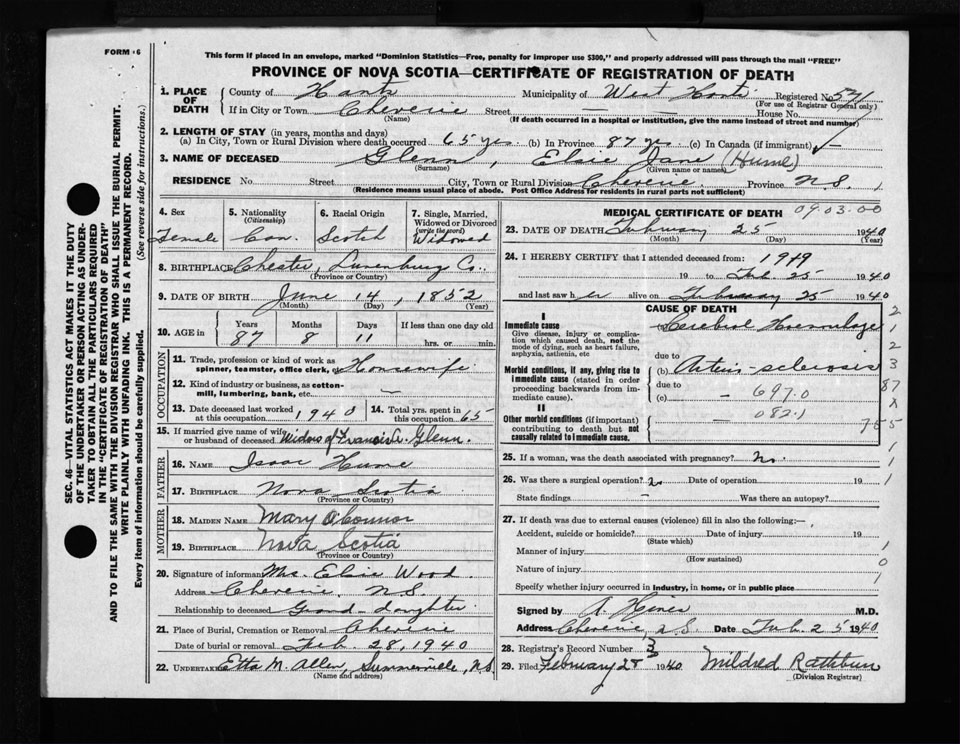 FORM 6
This form if placed in an envelope, marked "Dominion Statistics—Free, penalty for improper use $300," and properly addressed will pass through the mail "FREE"
PROVINCE OF NOVA SCOTIA—CERTIFICATE OF REGISTRATION OF DEATH
1. PLACE OF DEATH County of Hants Municipality of West Hants Registered No. 571
(For use of Registrar General only)
If in City or Town Cheverie Street — House No.
(Name) (If death occurred in a hospital or institution, give the name instead of street and number)
2. LENGTH OF STAY (in years, months and days)
(a) In City, Town or Rural Division where death occurred 65 yrs (b) In Province 87 yrs. (c) In Canada (if immigrant)
3. NAME OF DECEASED Glenn, Elsie Jane (Hume)
(Surname) (Given name or names)
RESIDENCE No. Street City, Town or Rural Division Cheverie. Province N.S.
(Residence means usual place of abode. Post Office Address for residents in rural parts not sufficient)
SEC. 46—VITAL STATISTICS ACT MAKES IT THE DUTY
OF THE UNDERTAKER OR PERSON ACTING AS UNDER-
TAKER TO OBTAIN ALL THE PARTICULARS REQUIRED
IN THE "CERTIFICATE OF REGISTRATION OF DEATH"
AND TO FILE THE SAME WITH THE DIVISION REGISTRAR WHO SHALL ISSUE THE BURIAL PERMIT.
WRITE PLAINLY WITH UNFADING INK. THIS IS A PERMANENT RECORD.
Every item of information should be carefully supplied. (See reverse side for Instructions.)
4. Sex 5. Nationality (Citizenship) 6. Racial Origin 7. Single, Married, Widowed or Divorced (write the word)
Female Can. Scotch Widowed
8. BIRTHPLACE Chester, Lunenburg Co.
(Province or Country)
9. DATE OF BIRTH June 14, 1852
(Month) (Day) (Year)
10. AGE in Years Months Days If less than one day old
87 8 11 hrs. or min.
OCCUPATION
11. Trade, profession or kind of work as spinner, teamster, office clerk, etc. Housewife
12. Kind of industry or business, as cotton-mill, lumbering, bank, etc. —
13. Date deceased last worked at this occupation 1940 14. Total yrs. spent in this occupation 65
15. If married give name of wife or husband of deceased Widow of Francis A. Glenn.
FATHER
16. NAME Isaac Hume
17. BIRTHPLACE Nova Scotia
(Province or Country)
MOTHER
18. MAIDEN NAME Mary O'Connor
19. BIRTHPLACE Nova Scotia
(Province or Country)
20. Signature of informant Mrs. Elsie Wood.
Address Cheverie, N.S.
Relationship to deceased Grand-daughter
21. Place of Burial, Cremation or Removal Cheverie
Date of burial or removal Feb. 28, 1940
22. UNDERTAKER Etta M. Allen, Summerville, N.S.
(Name and address)
MEDICAL CERTIFICATE OF DEATH 09.03.00
23. DATE OF DEATH February 25 1940
(Month) (Day) (Year)
24. I HEREBY CERTIFY that I attended deceased from: 1919
19 to Feb. 25 1940
and last saw her alive on February 25 1940
CAUSE OF DEATH
I
Immediate cause (a) Cerebral Haemorrhage
Give disease, injury or complication which caused death, not the mode of dying, such as heart failure, asphyxia, asthenia, etc
due to
Morbid conditions, if any, giving rise to immediate cause (stated in order proceeding backwards from immediate cause). (b) Arterio-sclerosis
due to
(c) — 697.0
082.1
II
Other morbid conditions (if important) contributing to death but not causally related to immediate cause. —
2
1
2
3
87
x
785
1
1
1
25. If a woman, was the death associated with pregnancy? no.
26. Was there a surgical operation? no Date of operation 19
State findings — Was there an autopsy?
27. If death was due to external causes (violence) fill in also the following:—
Accident, suicide or homicide? Date of injury 19
(State which)
Manner of injury
(How sustained)
Nature of injury
1
0
1
Specify whether injury occurred in industry, in home, or in public place
Signed by A. Hines M.D.
Address Cheverie, N.S. Date Feb. 25 1940
28. Registrar's Record Number 3
29. Filed February 28 1940 Mildred Rathburn
(Division Registrar)